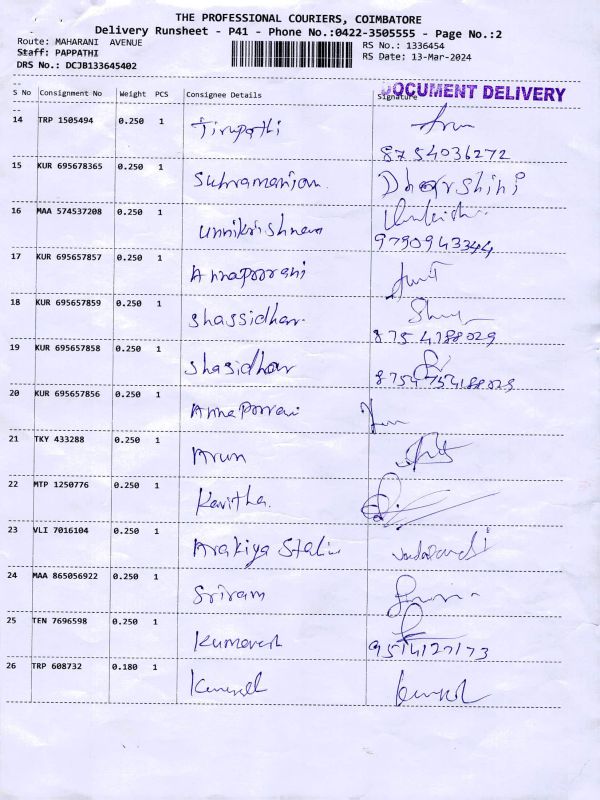 THE PROFESSIONAL COURIERS, COIMBATORE
Delivery Runsheet - P41 - Phone No.:0422-3505555 - Page No.:2
Route: MAHARANI AVENUE
RS No.: 1336454
Staff: PAPPATHI
RS Date: 13-Mar-2024
DRS No.: DCJB133645402
DOCUMENT DELIVERY
S No Consignment No Weight PCS Consignee Details Signature
14 TRP 1505494 0.250 1 Tirupathi
8754036272
15 KUR 695678365 0.250 1 Subramaniam Dharshini
16 MAA 574537208 0.250 1 Unnikrishnan
9790943344
17 KUR 695657857 0.250 1 Annapoorani
18 KUR 695657859 0.250 1 Shassidhar
8754188029
19 KUR 695657858 0.250 1 Shasidhar
20 KUR 695657856 0.250 1 Annapoorani
21 TKY 433288 0.250 1 Arun
22 MTP 1250776 0.250 1 Kavitha
23 VLI 7016104 0.250 1 Arakiya Stalin
24 MAA 865056922 0.250 1 Sriram
25 TEN 7696598 0.250 1 Kumaresh
9514127173
26 TRP 608732 0.180 1